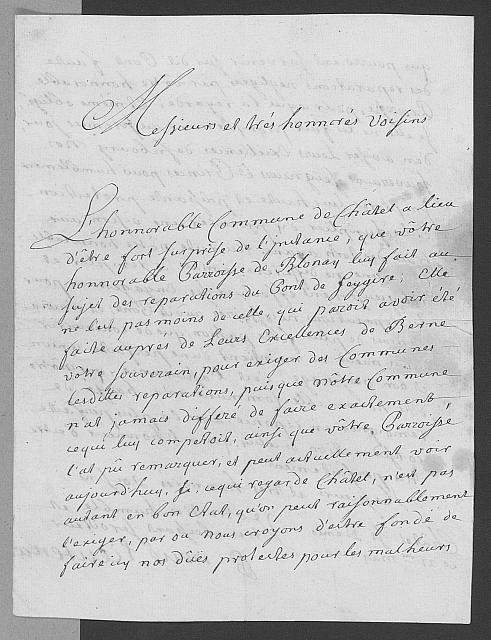 Messieurs et très honnorés Voisins
L'honnorable Commune de Châtel a lieu
d'être fort surprise de l'instance, que vôtre
honnorable Parroisse de Blonay luy fait au
sujet des reparations du Pont de Feygire; Elle
ne l'ut pas moins de celle, qui paroit avoir été
faite aupres de Leurs Excellences de Berne
vôtre Souverain, pour exiger des Communes
lesdittes reparations, puis que nôtre Commune
n'at jamais differé de faire exactement,
cequi luy competoit, ainsi que vôtre Parroisse
l'at pû remarquer, et peut actuellement voir
aujourd'huy, si, cequi regarde Châtel, n'est pas
autant en bon Etat, qu'on peut raisonnablement
l'exiger, par où nous croyons d'estre fondé de
faire icy nos dûes protestes pour les malheurs